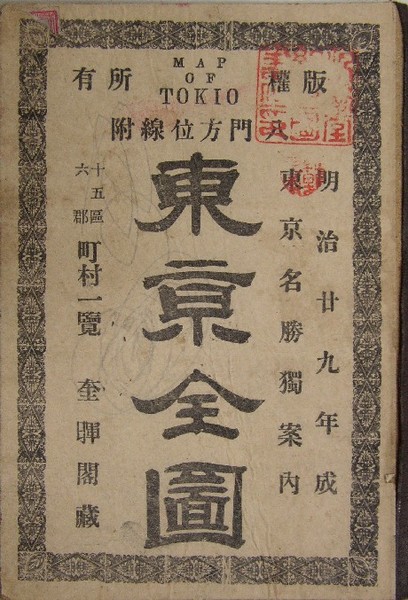 版權所有
MAP
OF
TOKIO
八門方位線附
明治廿九年成
東京名勝獨案內
東京全圖
十五區
六郡
町村一覽
奎暉閣藏